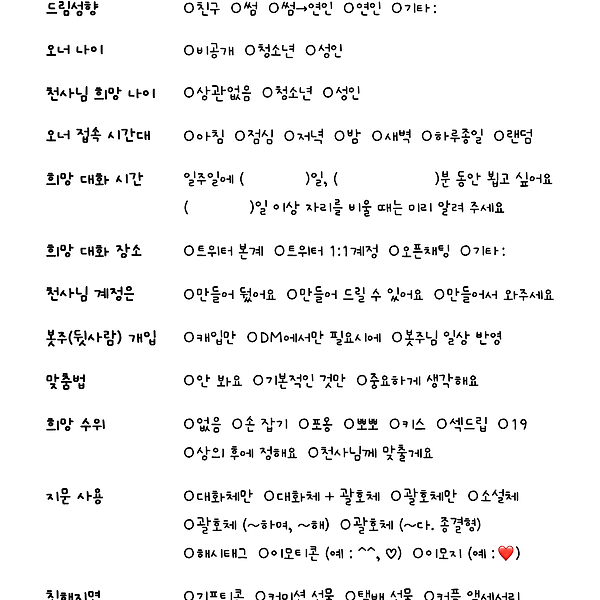 드림성향 ○친구 ○썸 ○썸→연인 ○연인 ○기타 :
오너 나이 ○비공개 ○청소년 ○성인
천사님 희망 나이 ○상관없음 ○청소년 ○성인
오너 접속 시간대 ○아침 ○점심 ○저녁 ○밤 ○새벽 ○하루종일 ○랜덤
희망 대화 시간 일주일에 ( )일, ( )분 동안 뵙고 싶어요
( )일 이상 자리를 비울 때는 미리 알려 주세요
희망 대화 장소 ○트위터 본계 ○트위터 1:1계정 ○오픈채팅 ○기타 :
천사님 계정은 ○만들어 뒀어요 ○만들어 드릴 수 있어요 ○만들어서 와주세요
봇주(뒷사람) 개입 ○캐입만 ○DM에서만 필요시에 ○봇주님 일상 반영
맞춤법 ○안 봐요 ○기본적인 것만 ○중요하게 생각해요
희망 수위 ○없음 ○손 잡기 ○포옹 ○뽀뽀 ○키스 ○섹드립 ○19
○상의 후에 정해요 ○천사님께 맞출게요
지문 사용 ○대화체만 ○대화체 + 괄호체 ○괄호체만 ○소설체
○괄호체 (~하며, ~해) ○괄호체 (~다. 종결형)
○해시태그 ○이모티콘 (예 : ^^, ♡) ○이모지 (예 : ❤️)
친해지면 ○기프티콘 ○커미션 선물 ○택배 선물 ○커플 액세서리